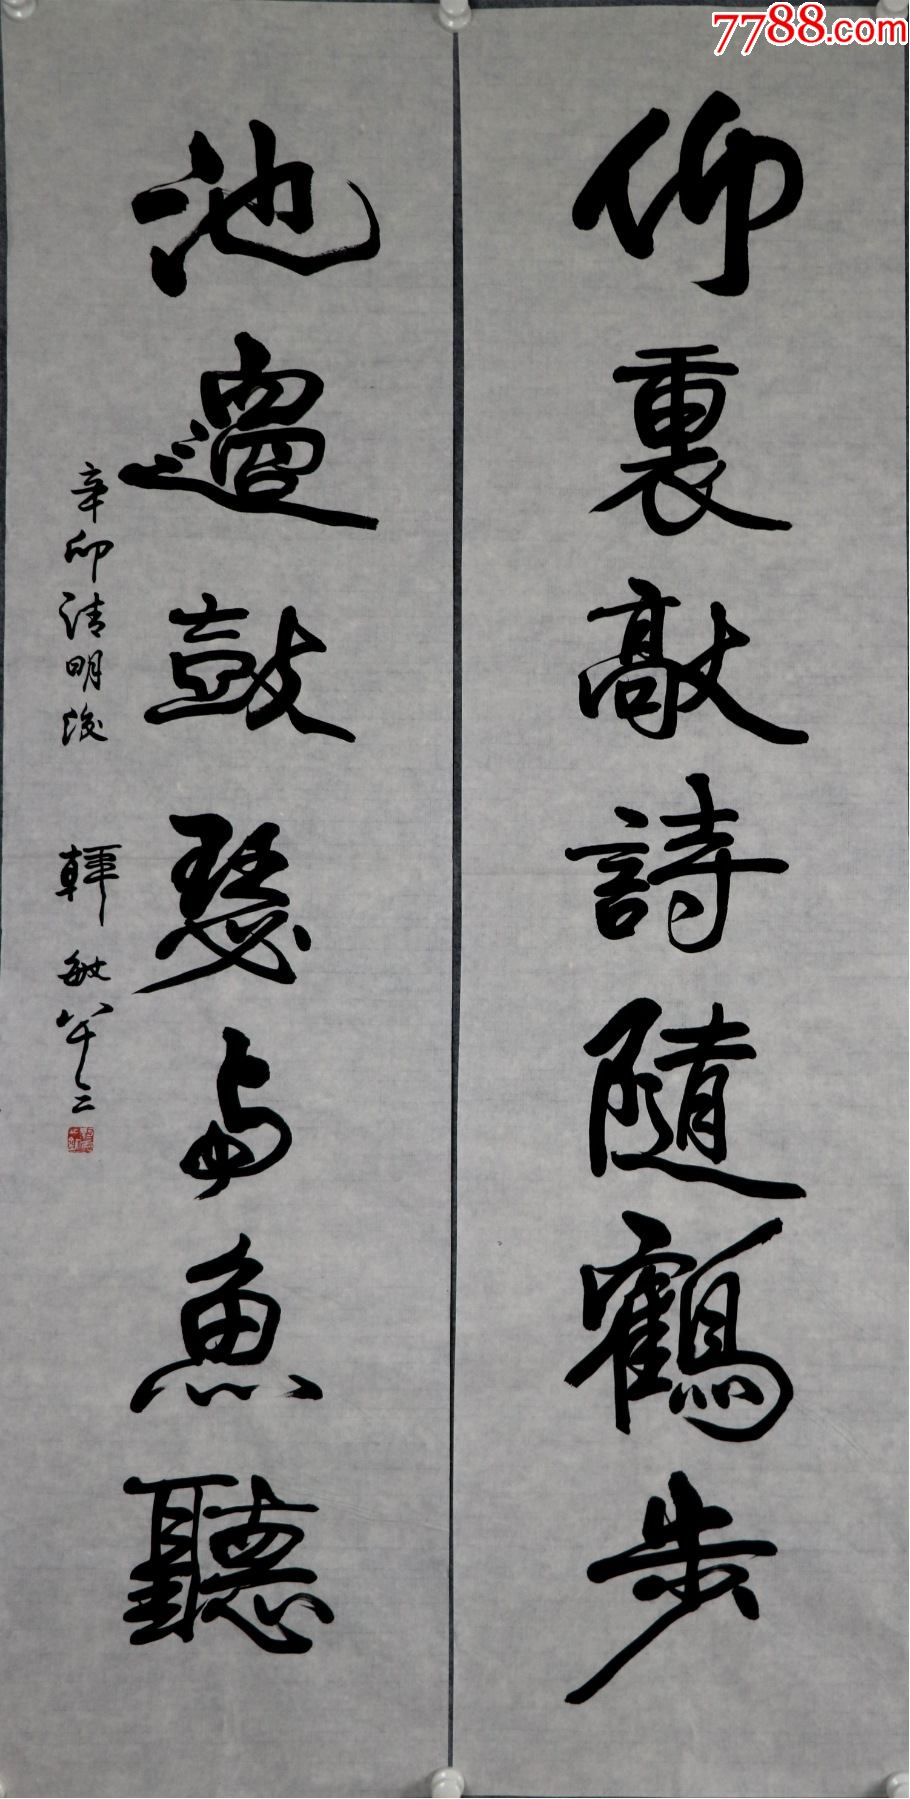 7788.com
仰裏敲詩隨鶴步
池邊鼓瑟與魚聽
辛卯清明後 韓敏八十二